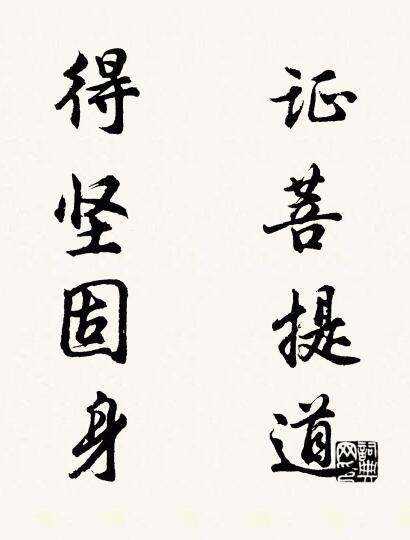 证菩提道
得坚固身
詞典網